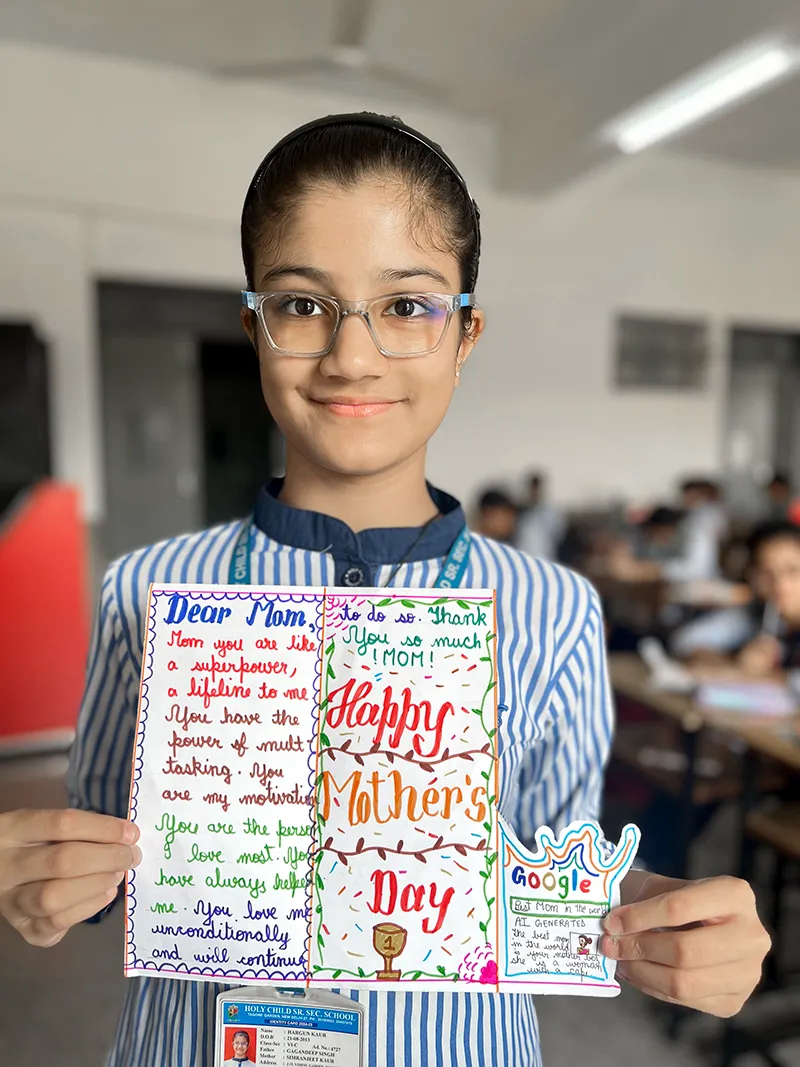 Dear Mom,
Mom you are like
a superpower,
a lifeline to me
You have the
power of mult
tasking. You
are my motivatio
You are the perso
I love most. You
have always helpe
me. You love me
unconditionally
and will continue
to do so. Thank
You so much
!MOM!
Happy
Mother's
Day
1
Google
Best Mom in the world
AI GENERATED
The best mom
in the world
is your mother bet
she is a woman
with a cape
CHILD
SR. SEC.
HOLY CHILD SR. SEC. SCHOOL
TAGORE GARDEN, NEW DELHI-27
IDENTITY CARD 2024-25
Name : HARGUN KAUR
D.O.B : 21-08-2013
Class-Sec : VI-C Ad. No.: 4727
Father : GAGANDEEP SINGH
Mother : SIMRANJEET KAUR
Address :